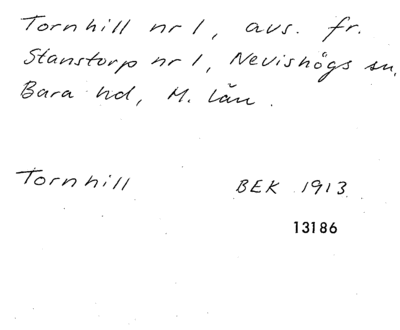 Tornhill nr 1, avs. fr.
Stanstorp nr 1, Nevishögs sn,
Bara hd, M. län.
Tornhill BEK 1913
13186